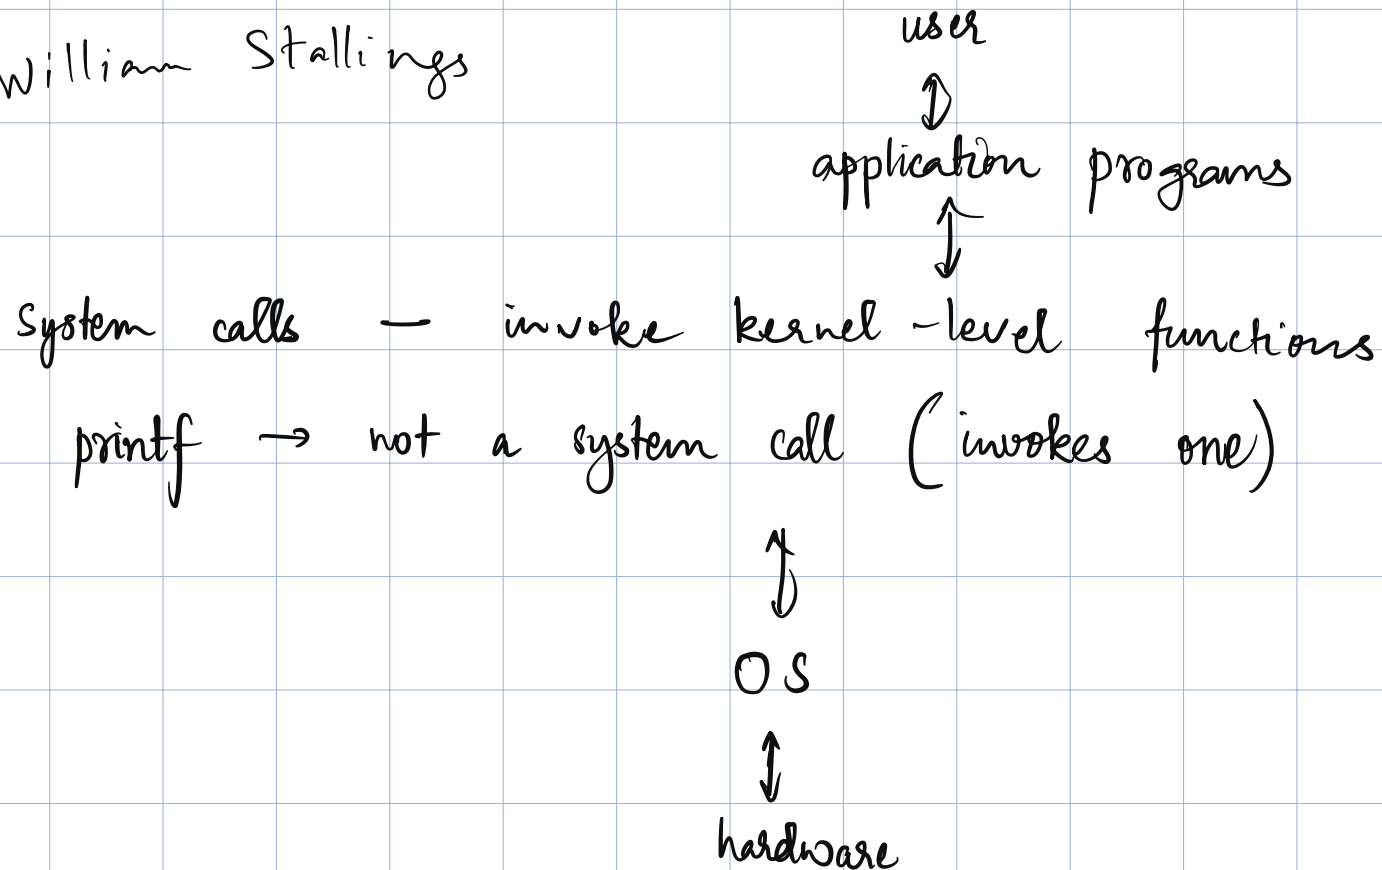 user
William Stallings
application programs
system calls — invoke kernel-level functions
printf → not a system call (invokes one)
OS
hardware